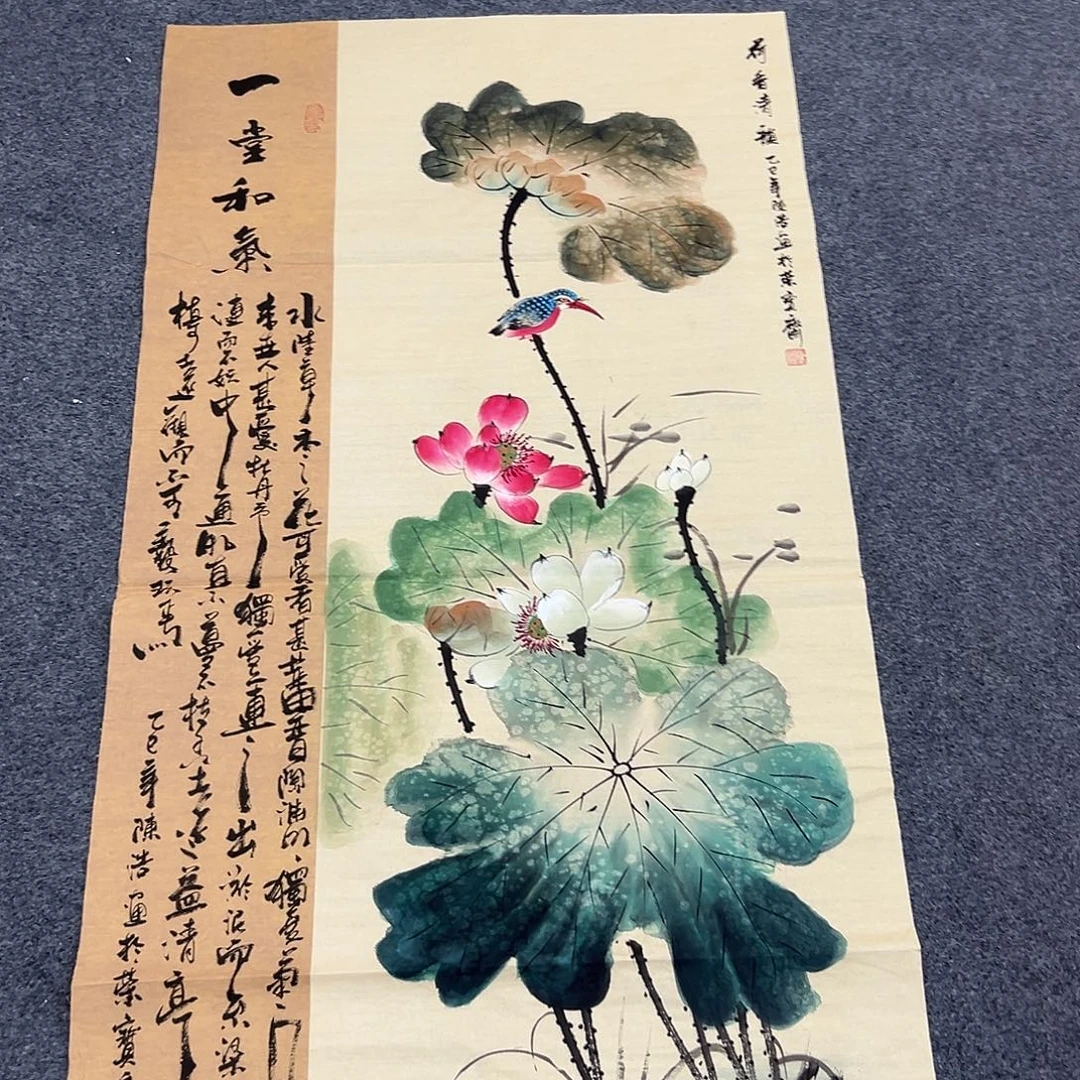 荷香清 乙巳年陳浩畫於榮寶齋
一堂和氣
水陸草木之花可愛者甚蕃晉陶淵明獨愛菊
來世人甚愛牡丹予獨愛蓮之出淤泥而不染
漣而不妖中通外直不蔓不枝香遠益清亭
植可遠觀而不可褻玩焉
乙巳年陳浩書於榮寶